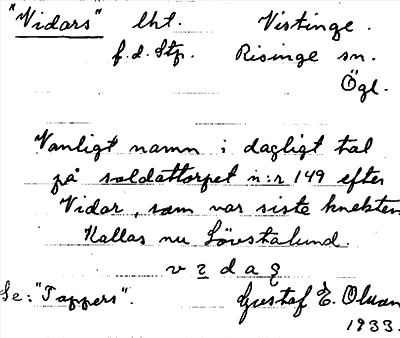 "Vidars" lht. Vistinge.
f.d. Stp. Risinge sn.
Ögl.
Vanligt namn i dagligt tal
på soldattorpet n:r 149 efter
Vidar, som var siste knekten
Kallas nu Lövstalund.
Se: "Tappers". Gustaf E. Olsson
1933.